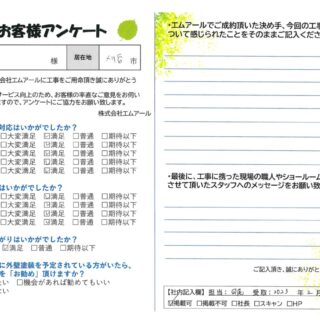 お客様アンケート
様 居在地 市
会社エムアールに工事をご用命頂き誠にありがとう
サービス向上のため、お客様の率直なご意見をお伺い
ますので、アンケートにご協力をお願い致します。
株式会社エムアール
対応はいかがでしたか？
□大変満足 ☑満足 □普通 □期待以下
□大変満足 ☑満足 □普通 □期待以下
□大変満足 ☑満足 □普通 □期待以下
□大変満足 ☑満足 □普通 □期待以下
はいかがでしたか？
□大変満足 ☑満足 □普通 □期待以下
□大変満足 ☑満足 □普通 □期待以下
□大変満足 ☑満足 □普通 □期待以下
がりはいかがでしたか？
☑満足 □普通 □期待以下
に外壁塗装を予定されている方がいたら、
を「お勧め」頂けますか？
たい □機会があれば勧めてもいい
ない
・エムアールでご成約頂いた決め手、今回の工事
ついて感じられたことをそのままご記入ください
・最後に、工事に携った現場の職人やショールーム
させて頂いたスタッフへのメッセージをお願い致
ご記入頂き、誠にありが
【社内記入欄】担当： 受取：2023 年 2 月
☑掲載可 □掲載不可 □社長 □スキャン □HP